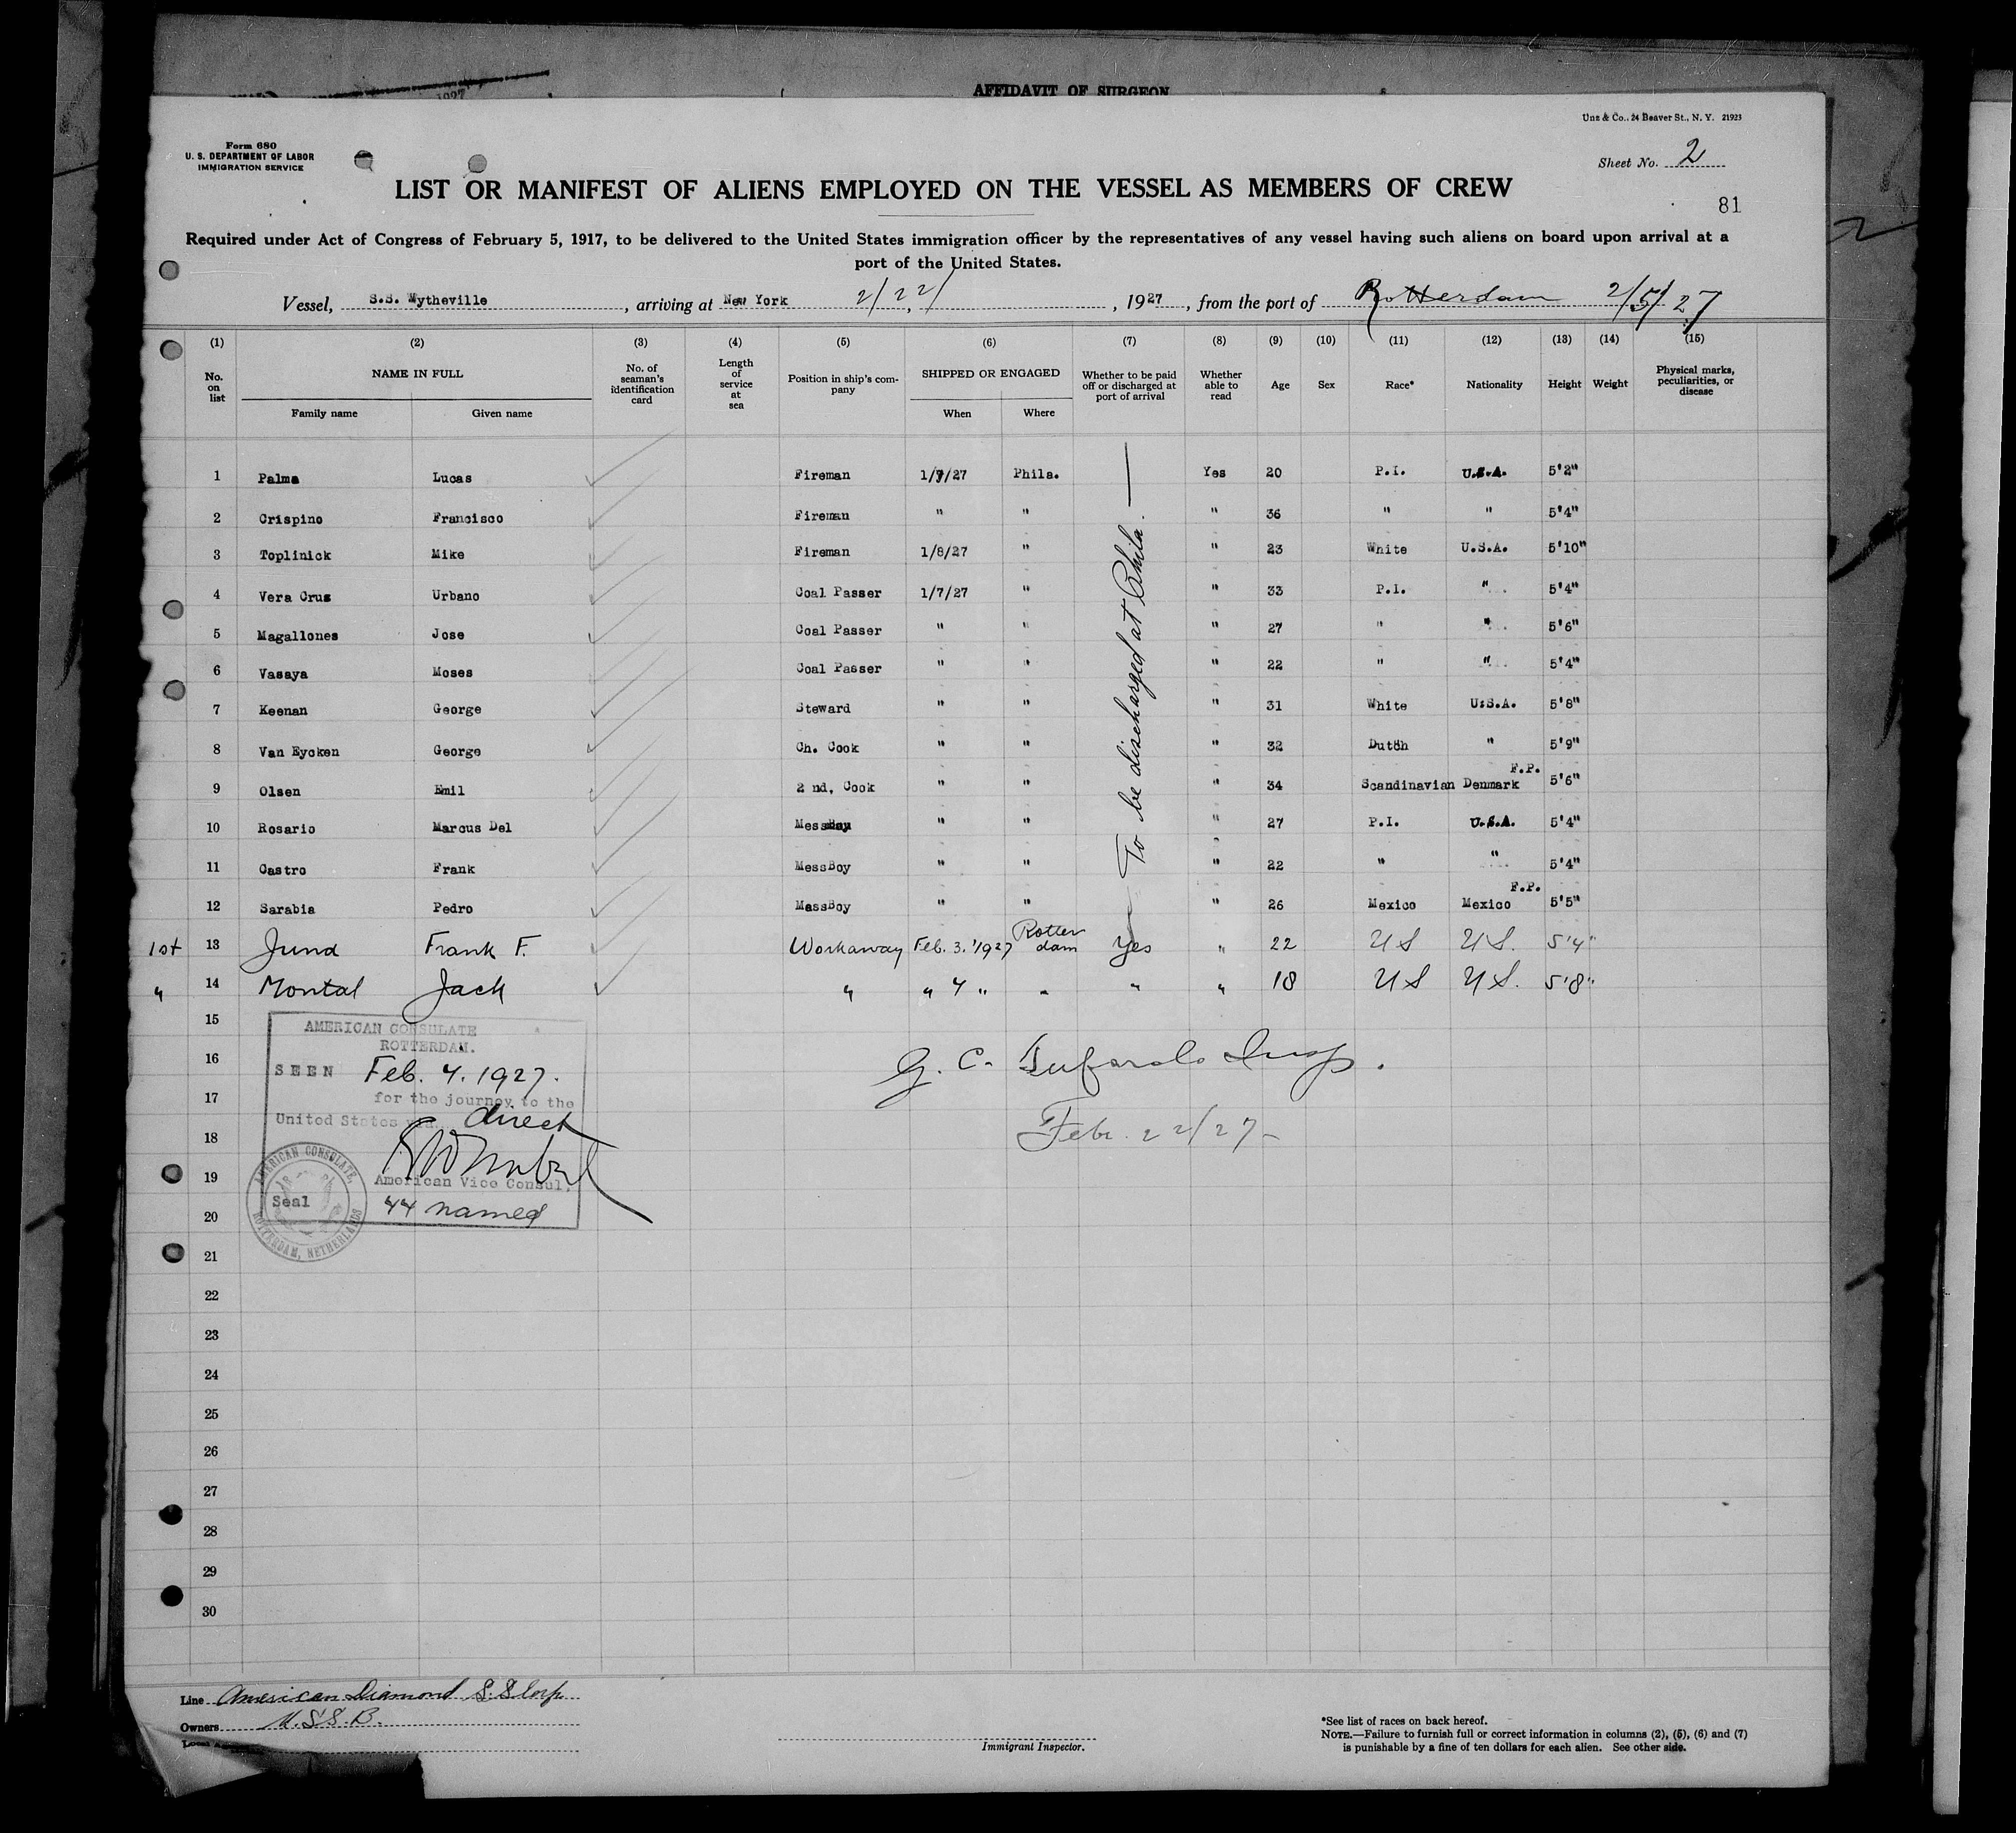 1927
AFFIDAVIT OF SURGEON
Uns & Co., 24 Beaver St., N. Y. 21923
Form 680
U. S. DEPARTMENT OF LABOR
IMMIGRATION SERVICE
Sheet No. 2
LIST OR MANIFEST OF ALIENS EMPLOYED ON THE VESSEL AS MEMBERS OF CREW
81
Required under Act of Congress of February 5, 1917, to be delivered to the United States immigration officer by the representatives of any vessel having such aliens on board upon arrival at a
port of the United States.
Vessel, S.S. Wytheville, arriving at New York 2/22/, 1927, from the port of Rotterdam 2/5/27
(1) (2) (3) (4) (5) (6) (7) (8) (9) (10) (11) (12) (13) (14) (15)
No. on list NAME IN FULL Family name Given name No. of seaman's identification card Length of service at sea Position in ship's company SHIPPED OR ENGAGED When Where Whether to be paid off or discharged at port of arrival Whether able to read Age Sex Race* Nationality Height Weight Physical marks, peculiarities, or disease
1 Palma Lucas Fireman 1/7/27 Phila. Yes 20 P.I. U.S.A. 5'2"
2 Crispino Francisco Fireman " " " 36 " " 5'4"
3 Toplinick Mike Fireman 1/8/27 " " 23 White U.S.A. 5'10"
4 Vera Cruz Urbano Coal Passer 1/7/27 " " 33 P.I. " 5'4"
5 Magallones Jose Coal Passer " " " 27 " " 5'6"
6 Vasaya Moses Coal Passer " " " 22 " " 5'4"
7 Keenan George Steward " " " 31 White U.S.A. 5'8"
8 Van Eycken George Ch. Cook " " " 32 Dutch " 5'9"
9 Olsen Emil 2 nd, Cook " " " 34 Scandinavian Denmark F.P. 5'6"
10 Rosario Marcus Del MessBoy " " " 27 P.I. U.S.A. 5'4"
11 Castro Frank MessBoy " " " 22 " " 5'4"
12 Sarabia Pedro MassBoy " " " 26 Mexico Mexico F.P. 5'5"
To be discharged at Phila.
1st 13 Jund Frank F. Workaway Feb. 3. 1927 Rotterdam Yes " 22 US US. 5'4"
" 14 Montal Jack " " 4 " " " " 18 US US. 5'8"
15
16
17
18
19
20
21
22
23
24
25
26
27
28
29
30
AMERICAN CONSULATE
ROTTERDAM.
SEEN Feb. 4. 1927.
for the journey to the
United States via direct
American Vice Consul.
Seal 44 named
AMERICAN CONSULATE, ROTTERDAM, NETHERLANDS
G. C. Insp.
Feb. 22/27
Line American Diamond S.S. Corp
Owners U.S.S.B.
Immigrant Inspector.
*See list of races on back hereof.
NOTE.—Failure to furnish full or correct information in columns (2), (5), (6) and (7)
is punishable by a fine of ten dollars for each alien. See other side.